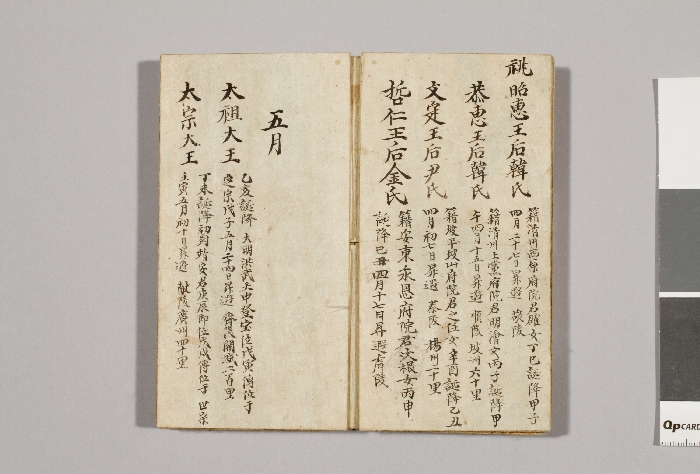 祧昭惠王后韓氏
籍清州西原府院君確女丁巳誕降甲子
四月二十七日昇遐 康陵
恭惠王后韓氏
籍清州上黨府院君明澮女丙子誕降甲
午四月十五日昇遐 順陵 坡州六十里
文定王后尹氏
籍坡平坡山府院君之任女辛酉誕降乙丑
四月初七日昇遐 泰陵 楊州二十里
哲仁王后金氏
籍安東永恩府院君汶根女丙申
誕降己丑四月十七日昇遐
五月
太祖大王
乙亥誕降 大明洪武壬申登宝位戊寅傳位于
定宗戊子五月二十四日昇遐 齊陵開城二百里
太宗大王
丁未誕降初封靖安君庚辰即位戊戌傳位于 世宗
壬寅五月初十日昇遐 献陵廣州四十里
QP CARD